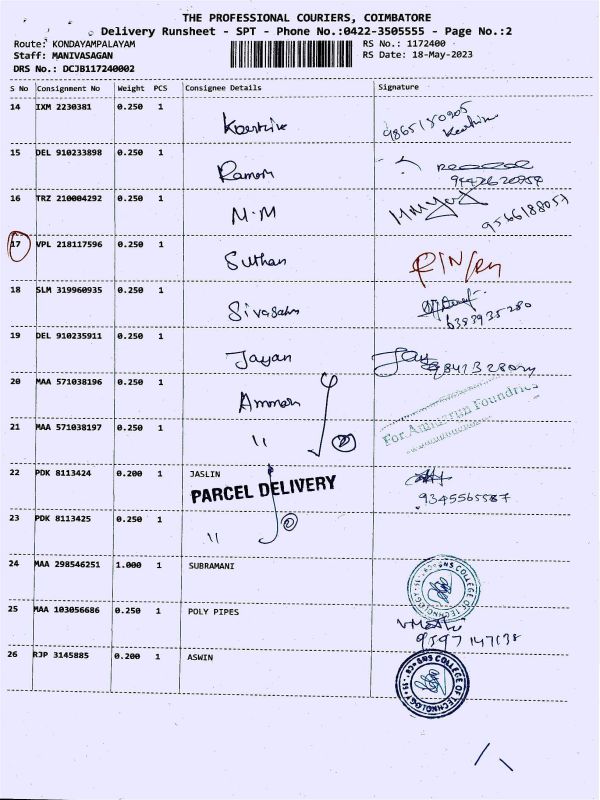 THE PROFESSIONAL COURIERS, COIMBATORE
Delivery Runsheet - SPT - Phone No.:0422-3505555 - Page No.:2
Route: KONDAYAMPALAYAM RS No.: 1172400
Staff: MANIVASAGAN RS Date: 18-May-2023
DRS No.: DCJB117240002
S No Consignment No Weight PCS Consignee Details Signature
14 IXM 2230381 0.250 1
15 DEL 910233898 0.250 1 Raman
16 TRZ 210004292 0.250 1 M.M
9566188057
17 VPL 218117596 0.250 1 Suthan
18 SLM 319960935 0.250 1
6393935280
19 DEL 910235911 0.250 1 Jayan Jay
20 MAA 571038196 0.250 1
For Foundries
21 MAA 571038197 0.250 1 "
22 PDK 8113424 0.200 1 JASLIN
PARCEL DELIVERY
9345565587
23 PDK 8113425 0.250 1 "
24 MAA 298546251 1.000 1 SUBRAMANI
SNS COLLEGE OF TECHNOLOGY
25 MAA 103056686 0.250 1 POLY PIPES
9597147138
26 RJP 3145885 0.200 1 ASWIN
SNS COLLEGE OF TECHNOLOGY